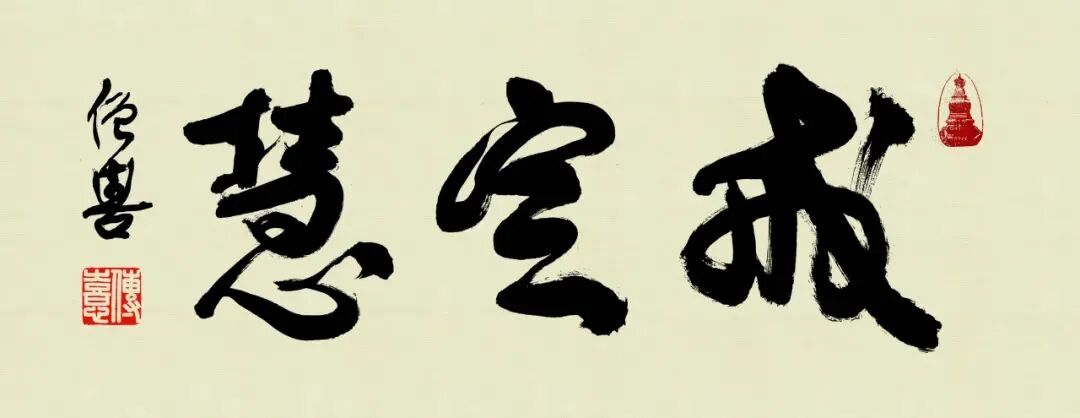 戒定慧
僧喜
傳喜